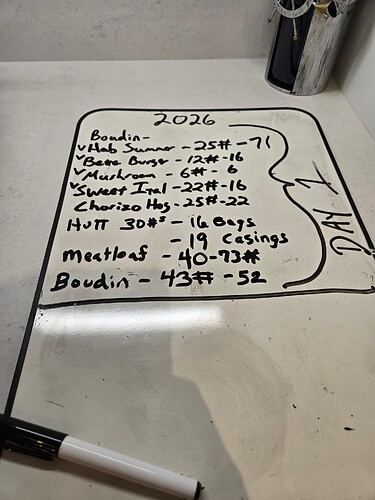 2026
Boudin-
✓Hab Summer - 25# - 71
✓Beer Burger - 12# - 16
✓Mushroom - 6# - 6
✓Sweet Ital - 22# - 16
Chorizo Hog - 25# - 22
30#s - 16 Bags
- 19 Casings
Meatloaf - 40 - 73#
Boudin - 43# - 52
DAY 1